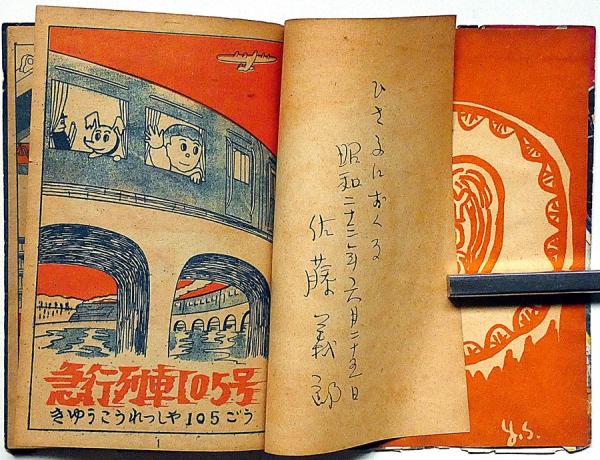 急行列車105号
きゆうこうれつしや105ごう
1
ひさ子におくる
昭和二十三年六月二十五日
佐藤義郎
y.s.